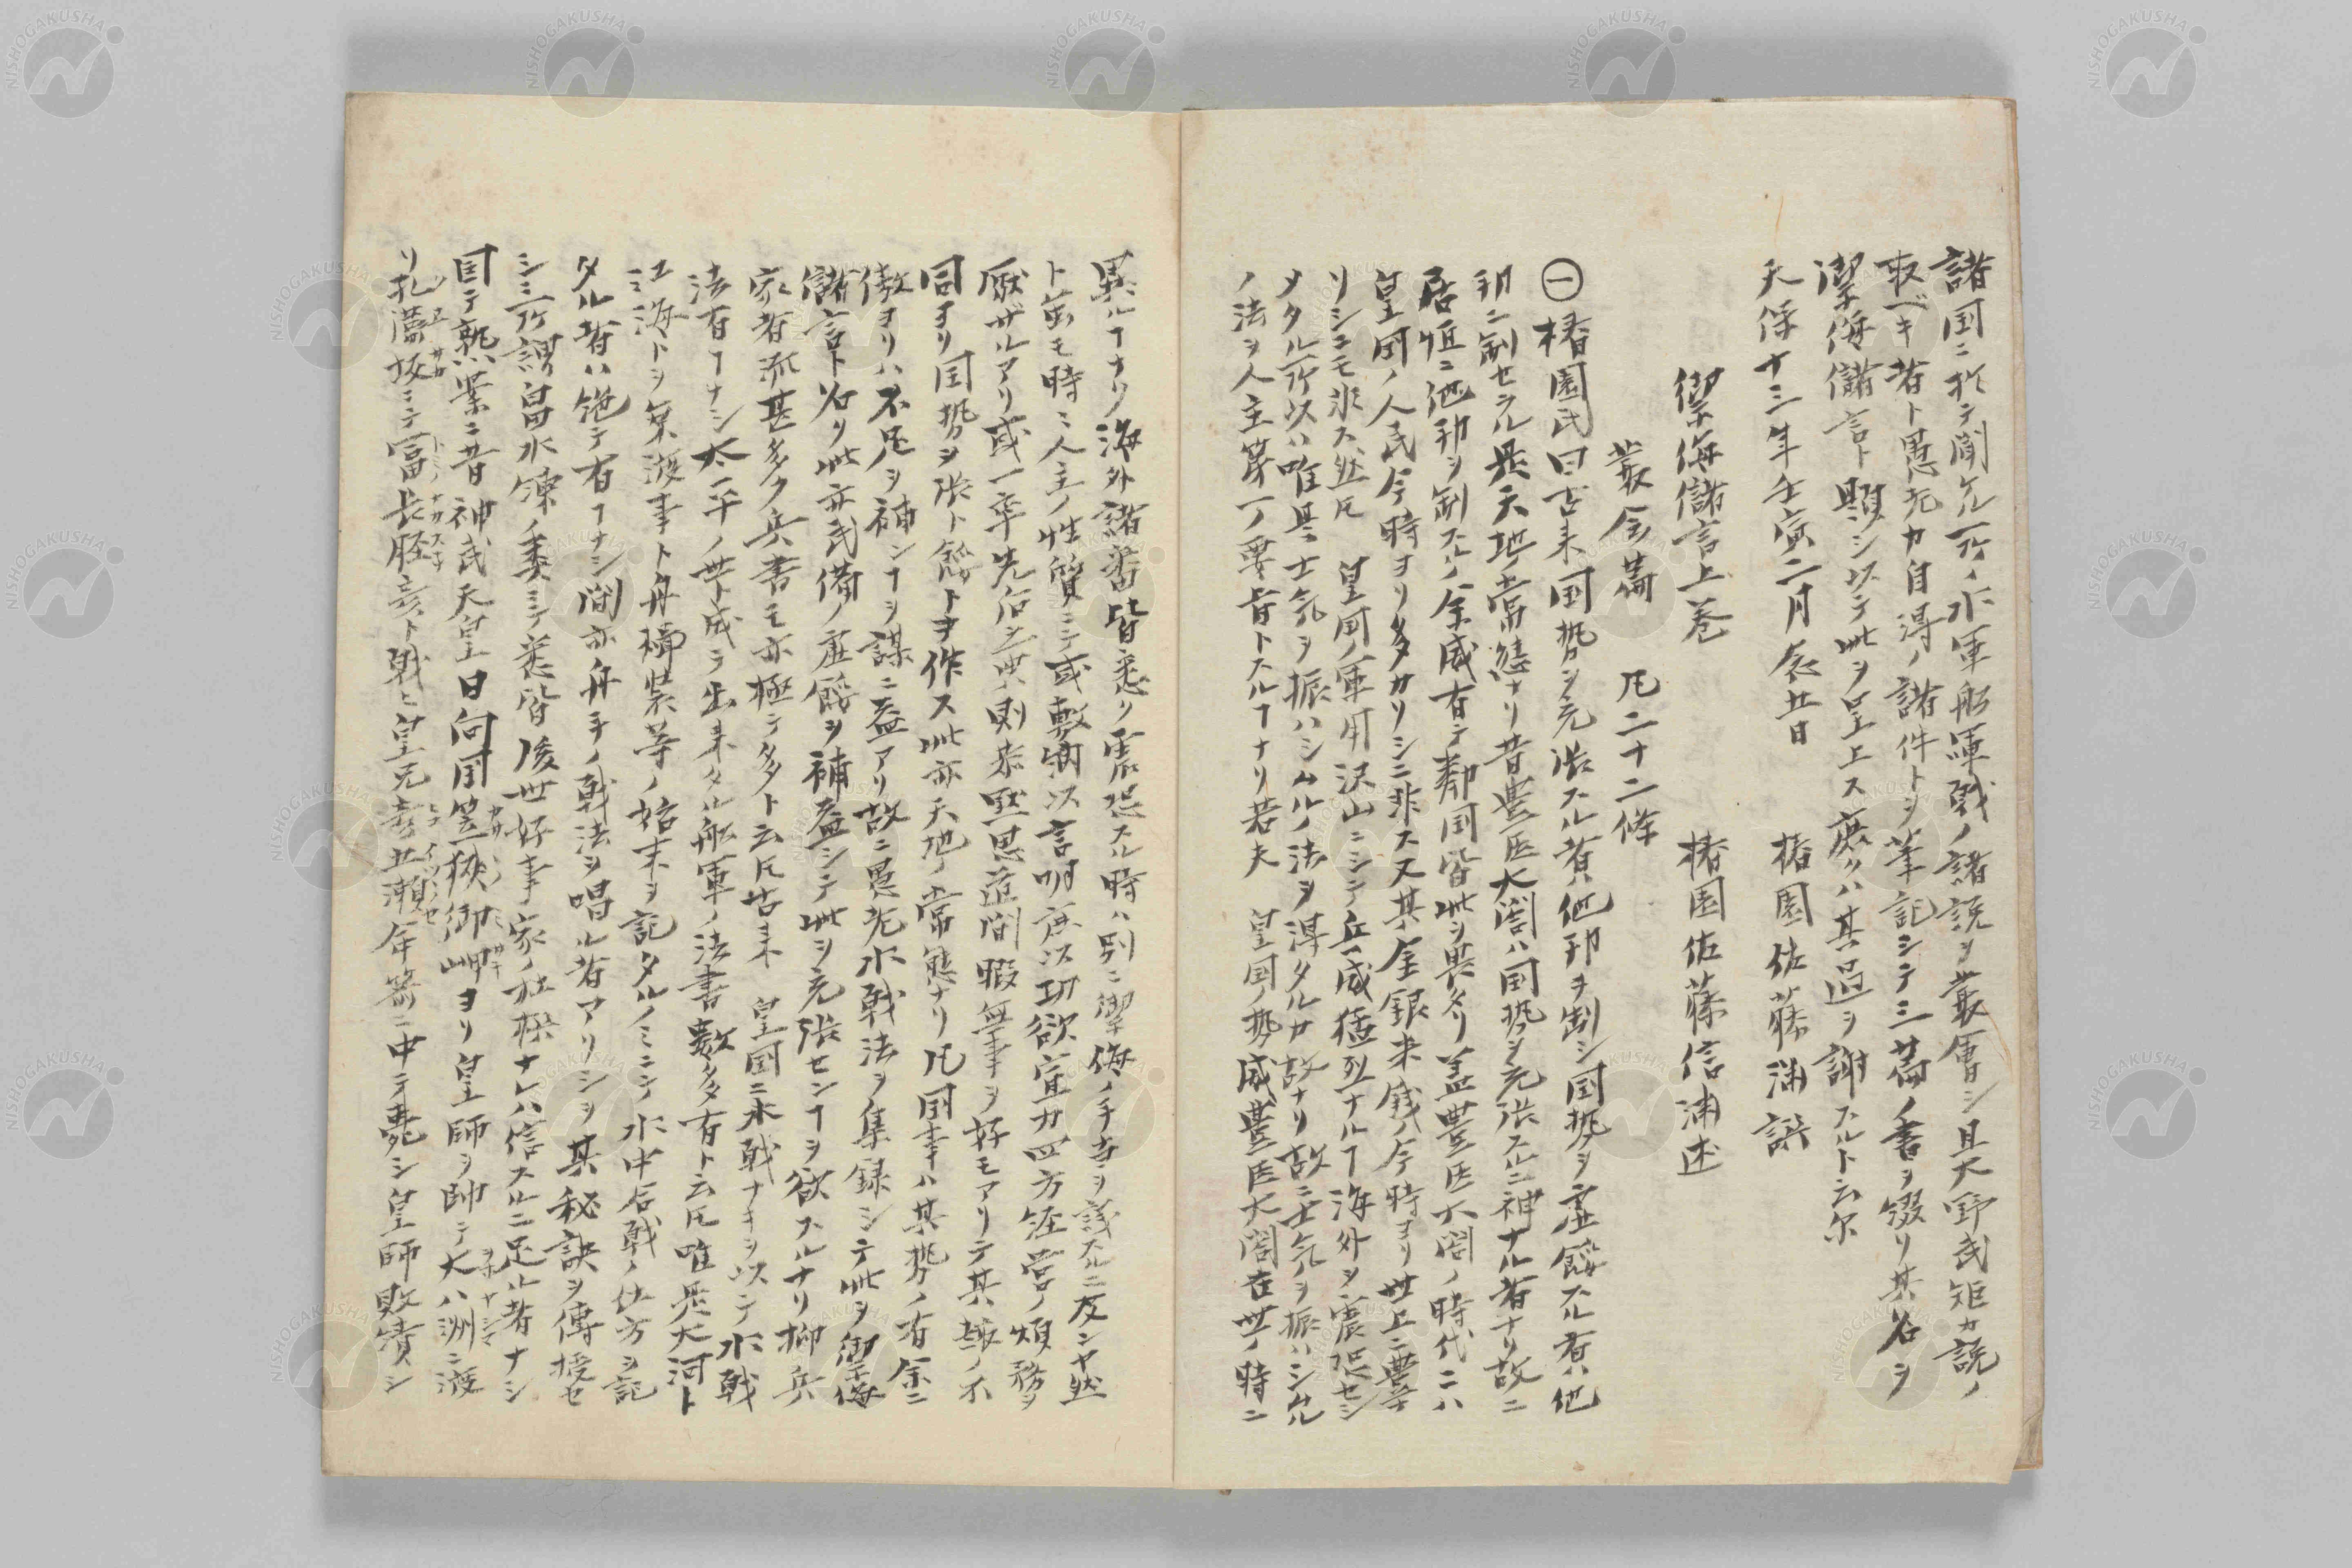 諸国ニ於テ聞ル所ノ水軍船軍戦ノ諸説ヲ叢會シ且大野武矩カ説ノ
取ベキ者ト愚老カ自得ノ諸件トヲ筆記シテ三篇ノ書ヲ綴リ其名ヲ
禦侮儲言ト題シ以テ此ヲ皇上ス庶クハ其過ヲ謝スルト云尓
天保十三年壬寅二月念五日　椿園佐藤淵誤
禦侮儲言上巻　椿園佐藤信淵述
叢会篇　凡二十二條
㊀椿園氏曰古来国勢ヲ充張スル者ハ他邦ヲ制シ国勢ヲ虚餒スル者ハ他
邦ニ制セラル是天地ノ常態ナリ昔豊臣大閤ハ国勢ヲ充張スルニ神ナル者ナリ故ニ
居恒ニ他邦ヲ制スルノ余威有テ鄰国皆此ヲ畏タリ盖豊臣大閤ノ時代ニハ
皇国ノ人民今時ヨリ多カリシニ非ス又其金銀米銭ノ今時ヨリ世上ニ豊
リシニモ非ス然ㇳモ　皇国ノ軍用沢山ニシテ兵威猛烈ナルヿ海外ヲ震恐セシ
メタル所以ハ唯是士気ヲ振ハシムルノ法ヲ得タルカ故ナリ故ニ士気ヲ振ハシムル
ノ法ヲ人主第一ノ要旨トスルヿナリ若夫　皇国ノ勢威豊臣大閤在世ノ時ニ
異ルヿナク海外諸蕃皆悉ク震恐スル時ハ別ニ禦侮ノ手寺ヲ議スルニ及ンヤ然
ト茁モ時ニ人主ノ性質ニテ或敷納以言明庶以功欲宣力四方経営ノ煩務ヲ
厭ザルアリ或一率先后之典則恭黙思道間暇無事ヲ好モアリテ其趣ノ不
同ヨリ国勢ヲ張ト餒トヲ作ス此亦天地ノ常態ナリ凡国事ハ其勢ノ有余ニ
傲ヨリハ不足ヲ補ンヿヲ謀ニ益アリ故ニ愚老水戦法ヲ集録シテ此ヲ禦侮
儲言ト名ク此亦武備ノ虚餒ヲ補益シテ此ヲ充張センヿヲ欲スルナリ抑兵
家者流甚多ク兵書モ亦極テ多ト云ㇳモ古来　皇国ニ水戦ナキヲ以テ水戦
法有ヿナシ太平ノ世ト成テ出来タル船軍ノ法書数多有ト云ㇳモ唯是大河ト
江海トヲ乗渡事ト舟備装等ノ始末ヲ記タルノミニテ水中合戦ノ仕方ヲ記
タル者ハ絶テ有ヿナシ間亦舟手ノ戦法ヲ唱ル者アリシヲ其秘訣ヲ傳授セ
シミ所謂畠水練ノ委ニテ悉皆後世好事家ノ杜撰ナレハ信スルニ足ル者ナシ
因テ熟案ニ昔神武天皇日向国笠狭御岬ヨリ皇師ヲ帥テ大八洲ニ渡
リ孔舎坂ニテ冨長脛彦ト戦ヒ皇兄彦五瀬命箭ニ中テ薨シ皇師敗績シ